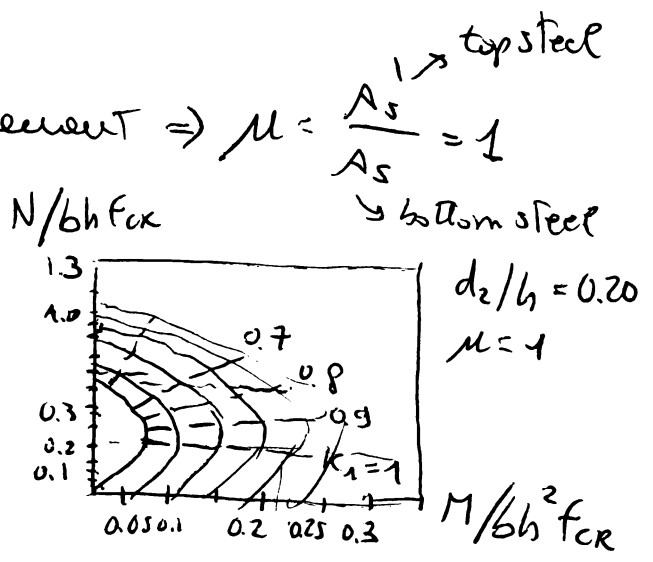 top steel
⇒ μ = As' / As = 1
bottom steel
N/bh fCK
1.3
1.0
0.3
0.2
0.1
0.7
0.8
0.9
K1=1
d2/h = 0.20
μ = 1
0.05 0.1 0.2 0.25 0.3
M/bh² fCK